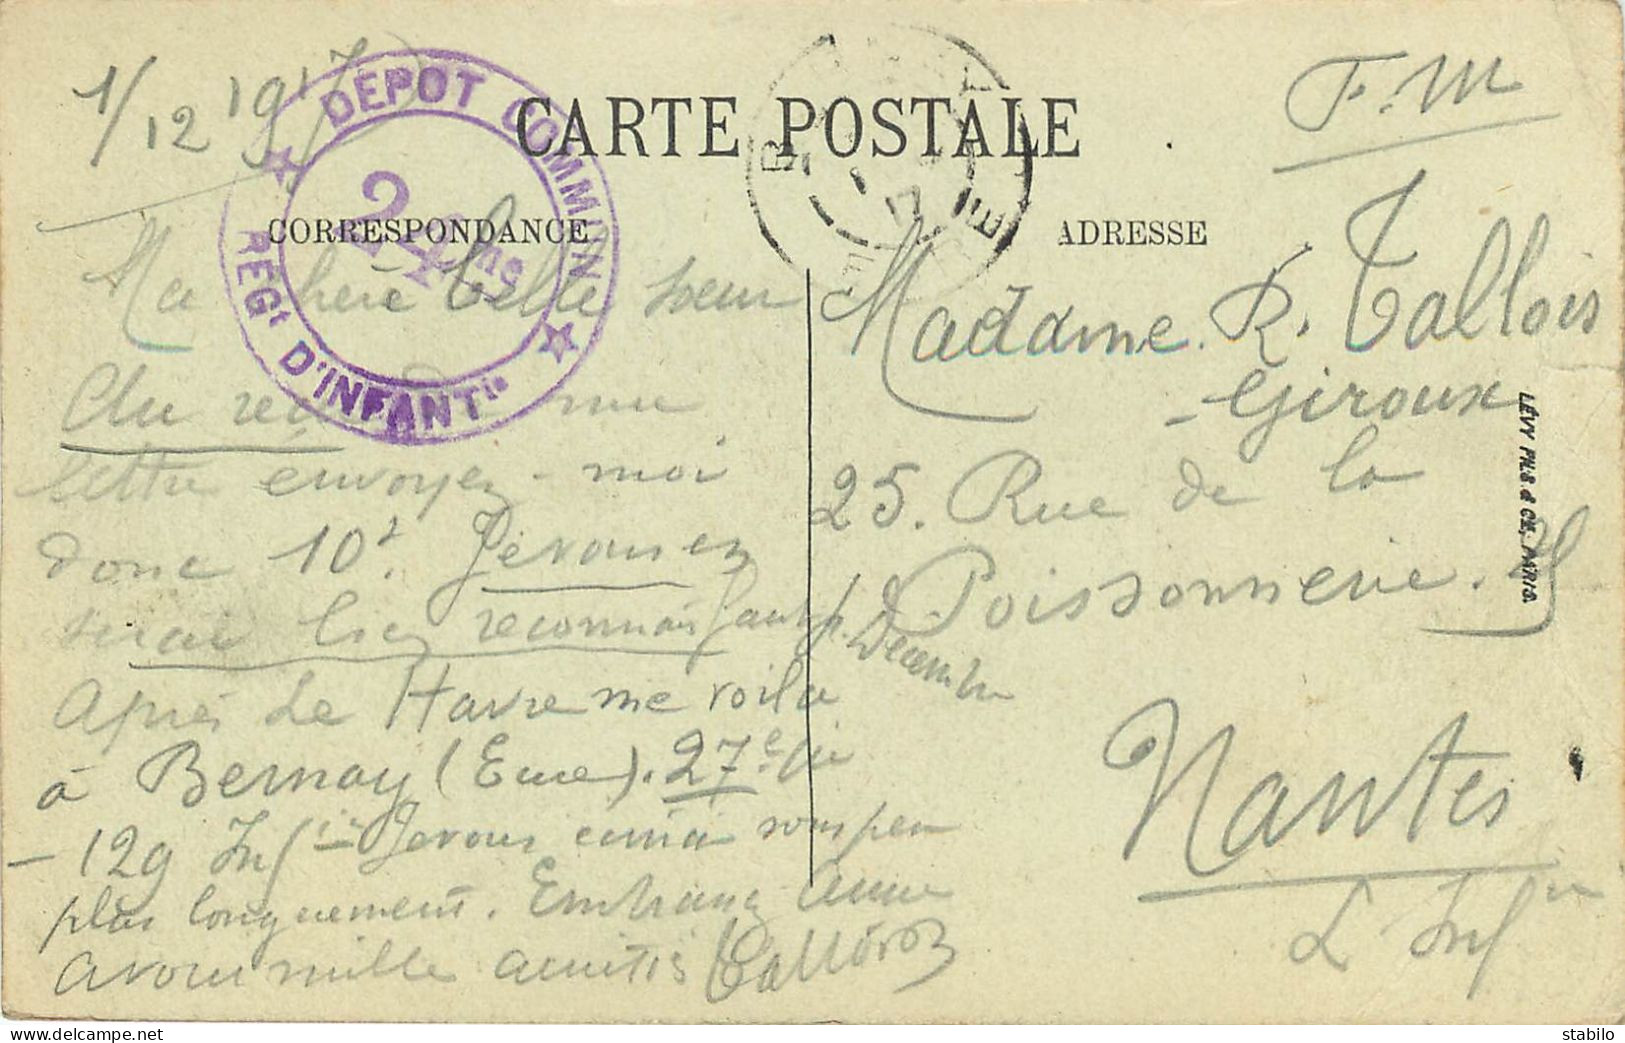 1/12 1917
DÉPÔT COMMUN
RÉGt D'INFANTie
CARTE POSTALE
CORRESPONDANCE
ADRESSE
F. M
Ma chère belle soeur
Au reçu de ma
lettre envoyez-moi
donc 10f. Je vous en
serai bien reconnaissant p. Décembre
Après Le Havre me voila
à Bernay (Eure). 27e Cie
- 129 Inf ie Je vous écrirai sous peu
plus longuement. Embrassez Anne
à vous mille amitiés Tallois
Madame R. Tallois
- Giroux
25. Rue de la
Poissonnerie. 25
Nantes
L. Infre
LÉVY FILS & CIE, PARIS.
stabilo
Delcampe.net